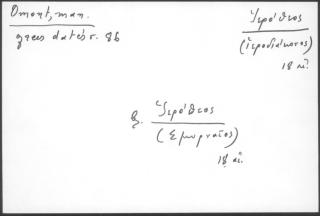 Omont, man.
grecs datés r. 86
Ἱερόθεος
(ἱεροδιάκονος)
18 αἰ.
β. Ἱερόθεος
(Σμυρναῖος)
18 αἰ.